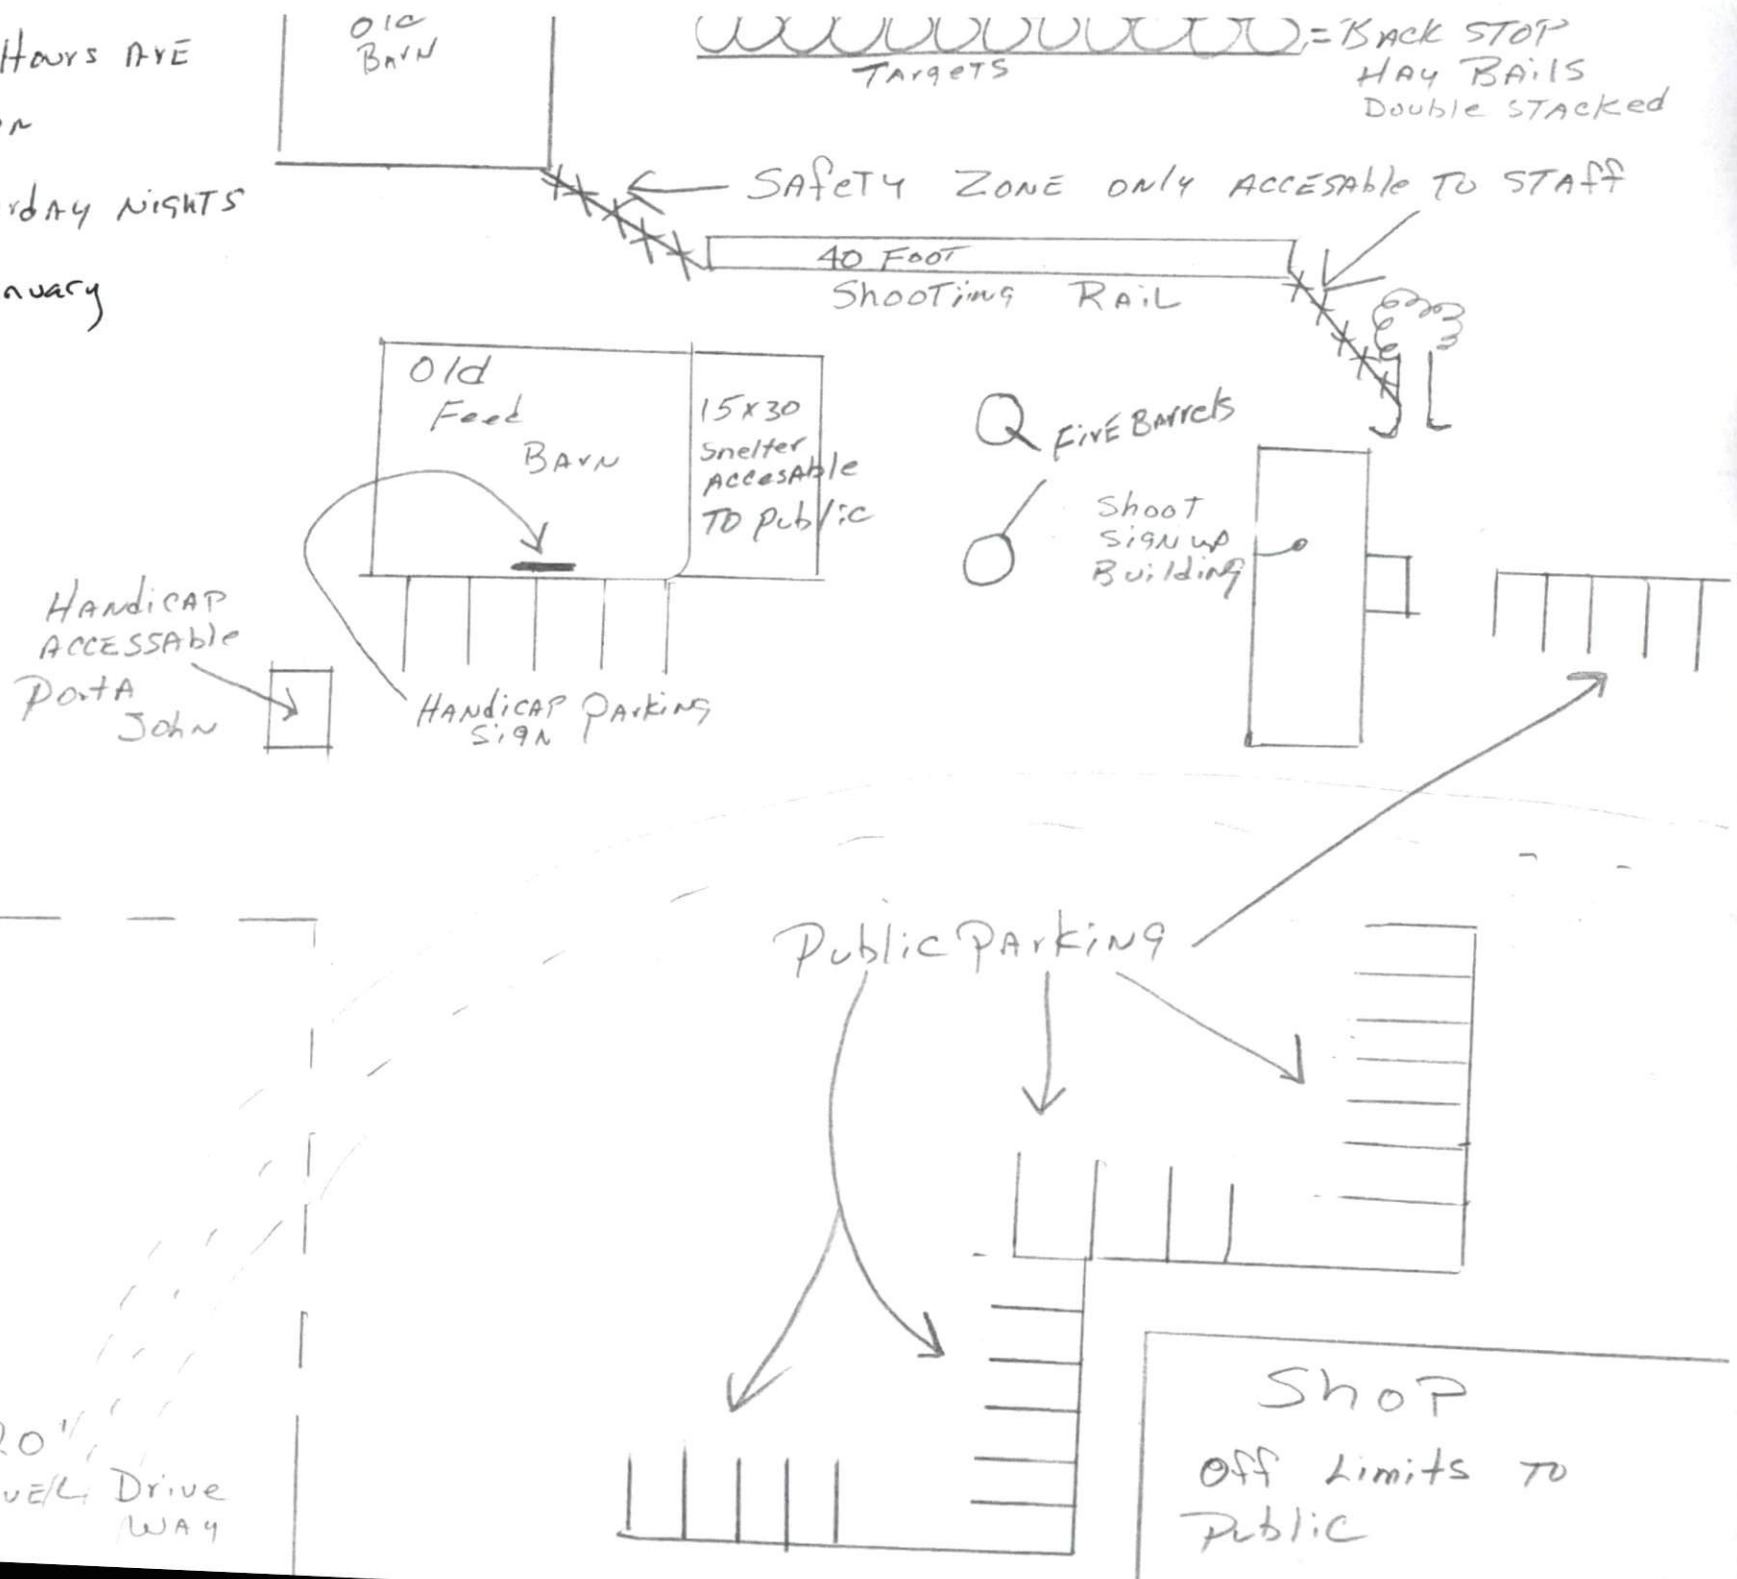 Hours Are
rday Nights
nuary
Old
Barn
Targets
= Back Stop
Hay Bails
Double Stacked
Safety Zone only Accesable To Staff
40 Foot
Shooting Rail
Old
Feed
Barn
15x30
Snelter
Accesable
To Public
Fire Barrels
Shoot
Sign up
Building
Handicap
Accessable
Porta
John
Handicap Parking
Sign
Public Parking
20'
vel Drive
Way
Shop
Off Limits To
Public